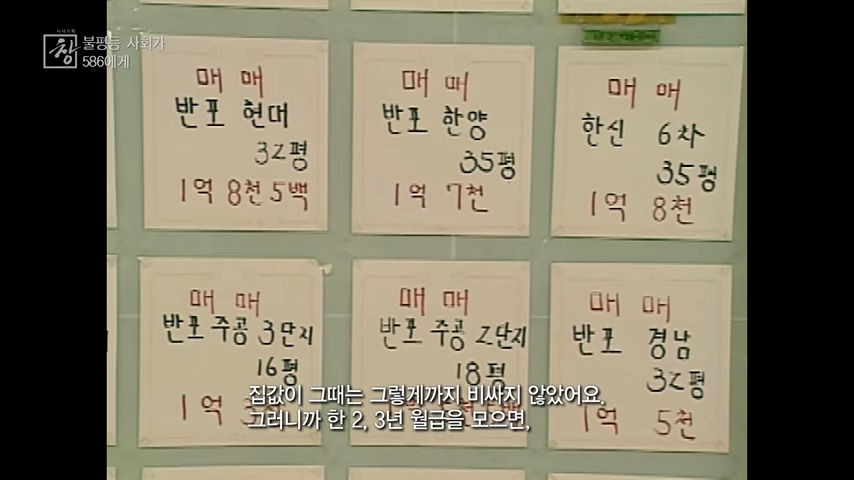 시사기획
창
불평등 사회가
586에게
매 매
반포 현대
32평
1억 8천 5백
매 매
반포 한양
35평
1억 7천
매 매
한신 6차
35평
1억 8천
매 매
반포 주공 3단지
16평
1억
매 매
반포 주공 2단지
18평
매 매
반포 경남
32평
1억 5천
집값이 그때는 그렇게까지 비싸지 않았어요.
그러니까 한 2, 3년 월급을 모으면,